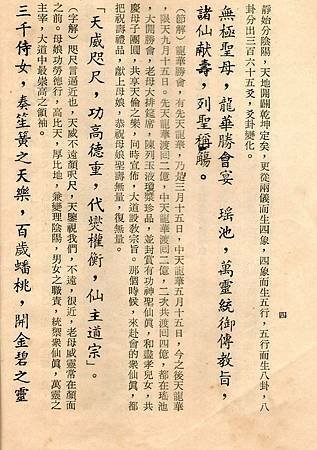 靜始分陰陽，天地開闢乾坤定矣，更從兩儀而生四象，四象而生五行，五行而生八卦，八
卦分出三百六十五爻，爻卦變化。
四
無極聖母，龍華勝會宴 瑤池，萬靈統御傳教旨，
諸仙献壽，列聖稱觴。
（節解）龍華勝會，有先天龍華，乃是三月十五日，中天龍華五月十五日，今之後天龍華
，限天九月十五日。先天龍華渡回二億，中天龍華渡回二億，二次共渡回四億，都在瑤池
，大開勝會，老母大排筵席，陳列玉液瓊漿珍品，並封賞有功神聖仙眞，和盡孝兒女，共
慶母子團圓，共享天倫之樂，同時宣佈，大道設教宗旨。那個時候，來赴會的衆仙眞，都
把祝壽禮品，献上母娘，恭祝母娘聖壽無量，復無量。
「天威咫尺，功高德重，代燮權衡，仙主道宗」。
（字解）咫尺言逼近也，天威不遠顏咫尺，天鑒視我們，不遠，很近，老母威靈常在顏面
之前。母娘功勞德行，高比天，厚比地，兼變理陰陽，男女之職責，統塋衆仙眞，萬靈之
主宰，大道中最崇高之領袖。
三千侍女，奏笙簧之天樂，百歲蟠桃，開金碧之靈